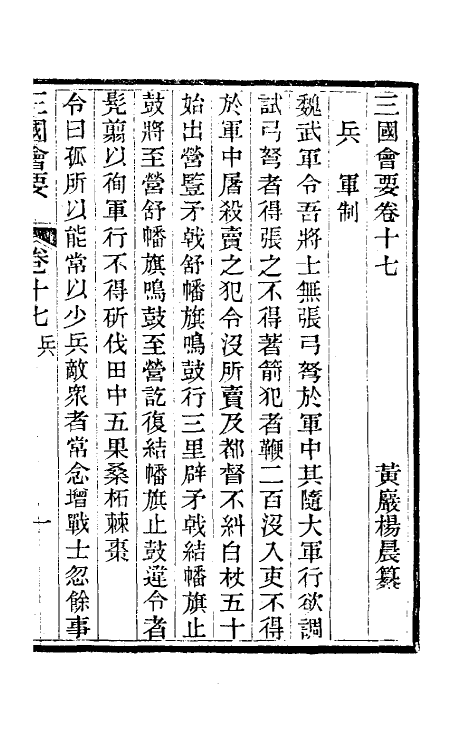 三國會要卷十七
黃巖楊晨纂
兵　軍制
魏武軍令吾將士無張弓弩於軍中其隨大軍行欲調
試弓弩者得張之不得著箭犯者鞭二百沒入吏不得
於軍中屠殺賣之犯令沒所賣及都督不糾白杖五十
始出營豎矛戟舒幡旗鳴鼓行三里辟矛戟結幡旗止
鼓將至營舒幡旗鳴鼓至營訖復結幡旗止鼓違令者
髡翦以徇軍行不得斫伐田中五果桑柘棘棗
令曰孤所以能常以少兵敵衆者常念增戰士忽餘事
三國會要　卷十七　兵　一